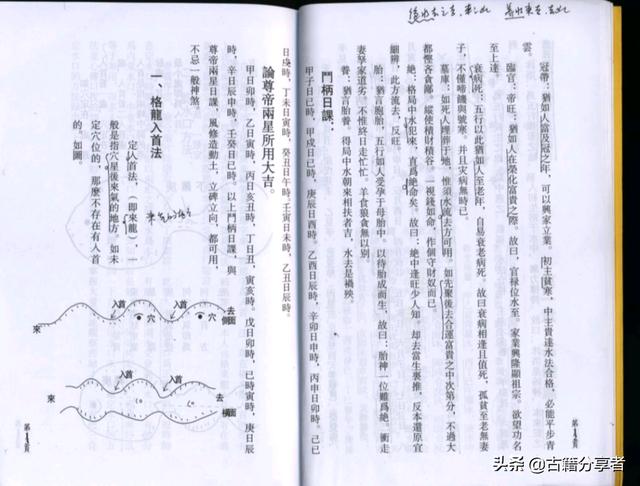 冠帶：猶如人當及冠之年，可以興家立業。初主貧寒，中主貴達水法合格，必能平步青
雲。
臨官：帝旺：猶如人在榮化富貴之際。故曰，官祿位水至。家業興隆顯祖宗。欲望功名
至上達。
衰病死：五行以此猶如人至老年，自易衰老病死，故曰衰病相逢且值死，孤貧至老無妻
子，不僅啼饑與號寒，并且灾病無時已。
墓庫：如死人埋葬于地，惟須水流去方可用。如先聚後去合運富貴之中次第分，不過大
都慳吝貪鄙，縱使積財積谷，一視錢如命，作個守財奴而已。
絶：格局中水犯來，直爲絶命矣。故曰：絶中逢旺少人知，却去當生裏推，反本還原宜
細辨，此方流去，反旺。
胎：猶言胞胎，五行如人受孕于母胎中。以待胎成而生，故曰：胎神一位雖爲絶。衝走
妻孥家道劣。不惟終日走忙忙。羊食狼貪無以別
養：猶言胎養，得局中水朝來相扶者吉，水去是禍殃。
鬥柄日課：
甲子日己時，甲戌日己時，庚辰日酉時。乙酉日辰時，辛卯日申時，丙申日卯時，己已
日戌時，丁未日寅時，癸丑日午時。壬寅日未時，乙丑日辰時。
論尊帝兩星所用大吉。
甲日卯時，乙日寅時，丙日亥丑時，丁日丑，寅亥時。戊日卯時，己時寅時，庚日辰
時，辛日辰申時，壬癸日已時。以上鬥柄日課，與
尊帝兩星日課，風修造動土，立碑立向，都可用，
不忌一般神煞。
一、格龍入首法
定入首法，（即來龍），一
般是指穴星後來氣的地方。如未
定穴位的，那麼不存在有人首
的。如圖。
來
入首
穴
入首
穴
去
側面
來
入首
入首
去
橫面
头条 @古籍分享者